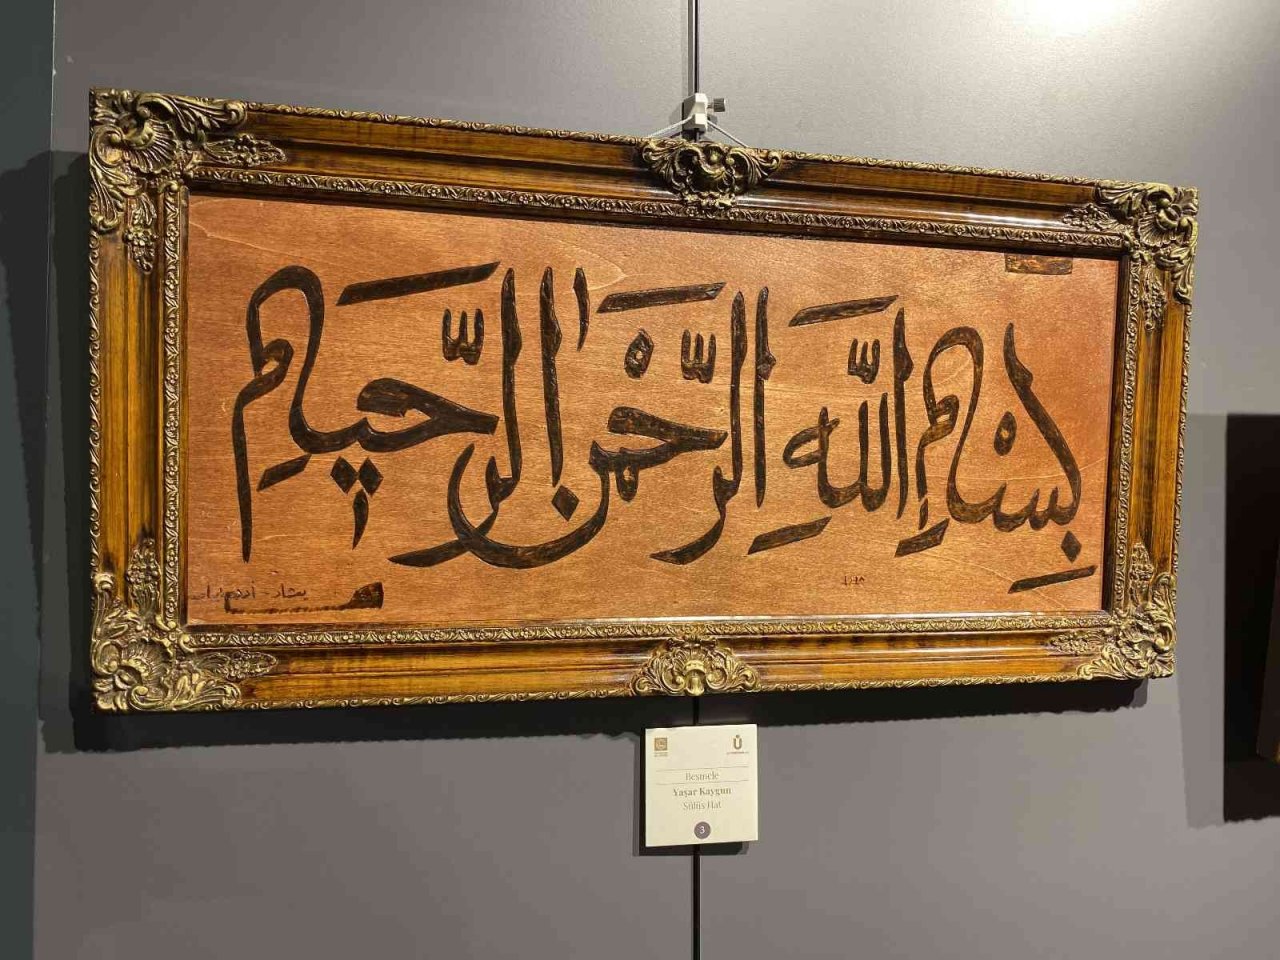 بِسْمِ اللّٰهِ الرَّحْمٰنِ الرَّحِيمِ
Besmele
Yaşar Kaygun
Sülüs Hat
3